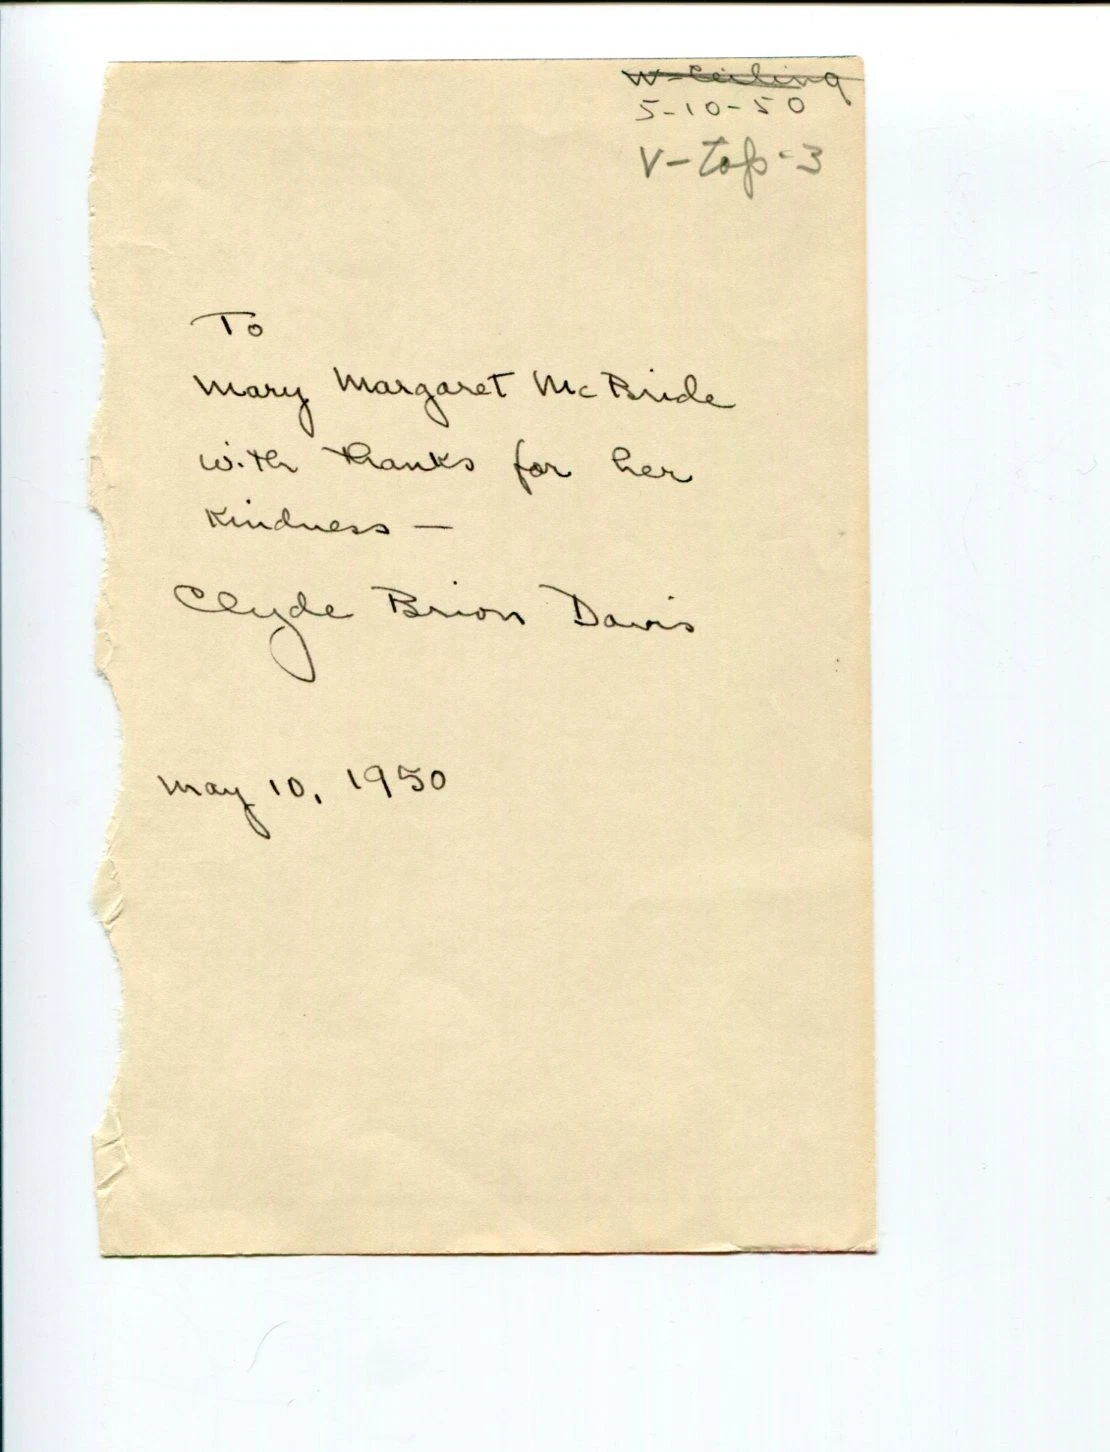 W-Ceiling
5-10-50
V-top-3
To
Mary Margaret McBride
with thanks for her
kindness —
Clyde Brion Davis
May 10, 1950